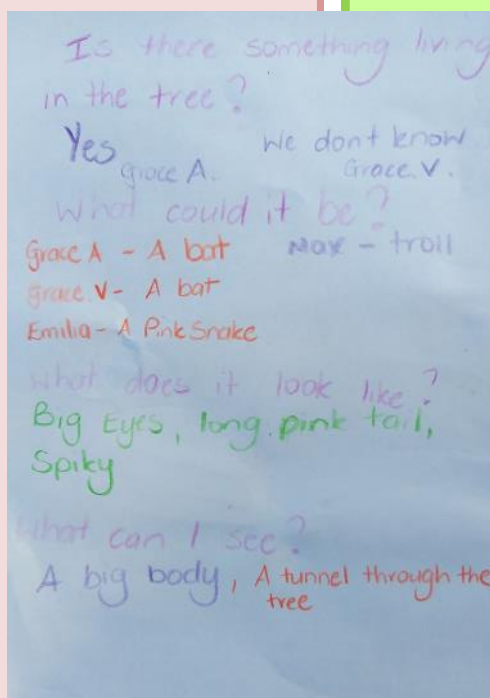 Is there something living
in the tree?
Yes
Grace A.
We dont know
Grace. V.
What could it be?
Grace A - A bat
Max - troll
Grace. V - A bat
Emilia - A Pink Snake
What does it look like?
Big Eyes, long pink tail,
Spiky
What can I see?
A big body, A tunnel through the
tree